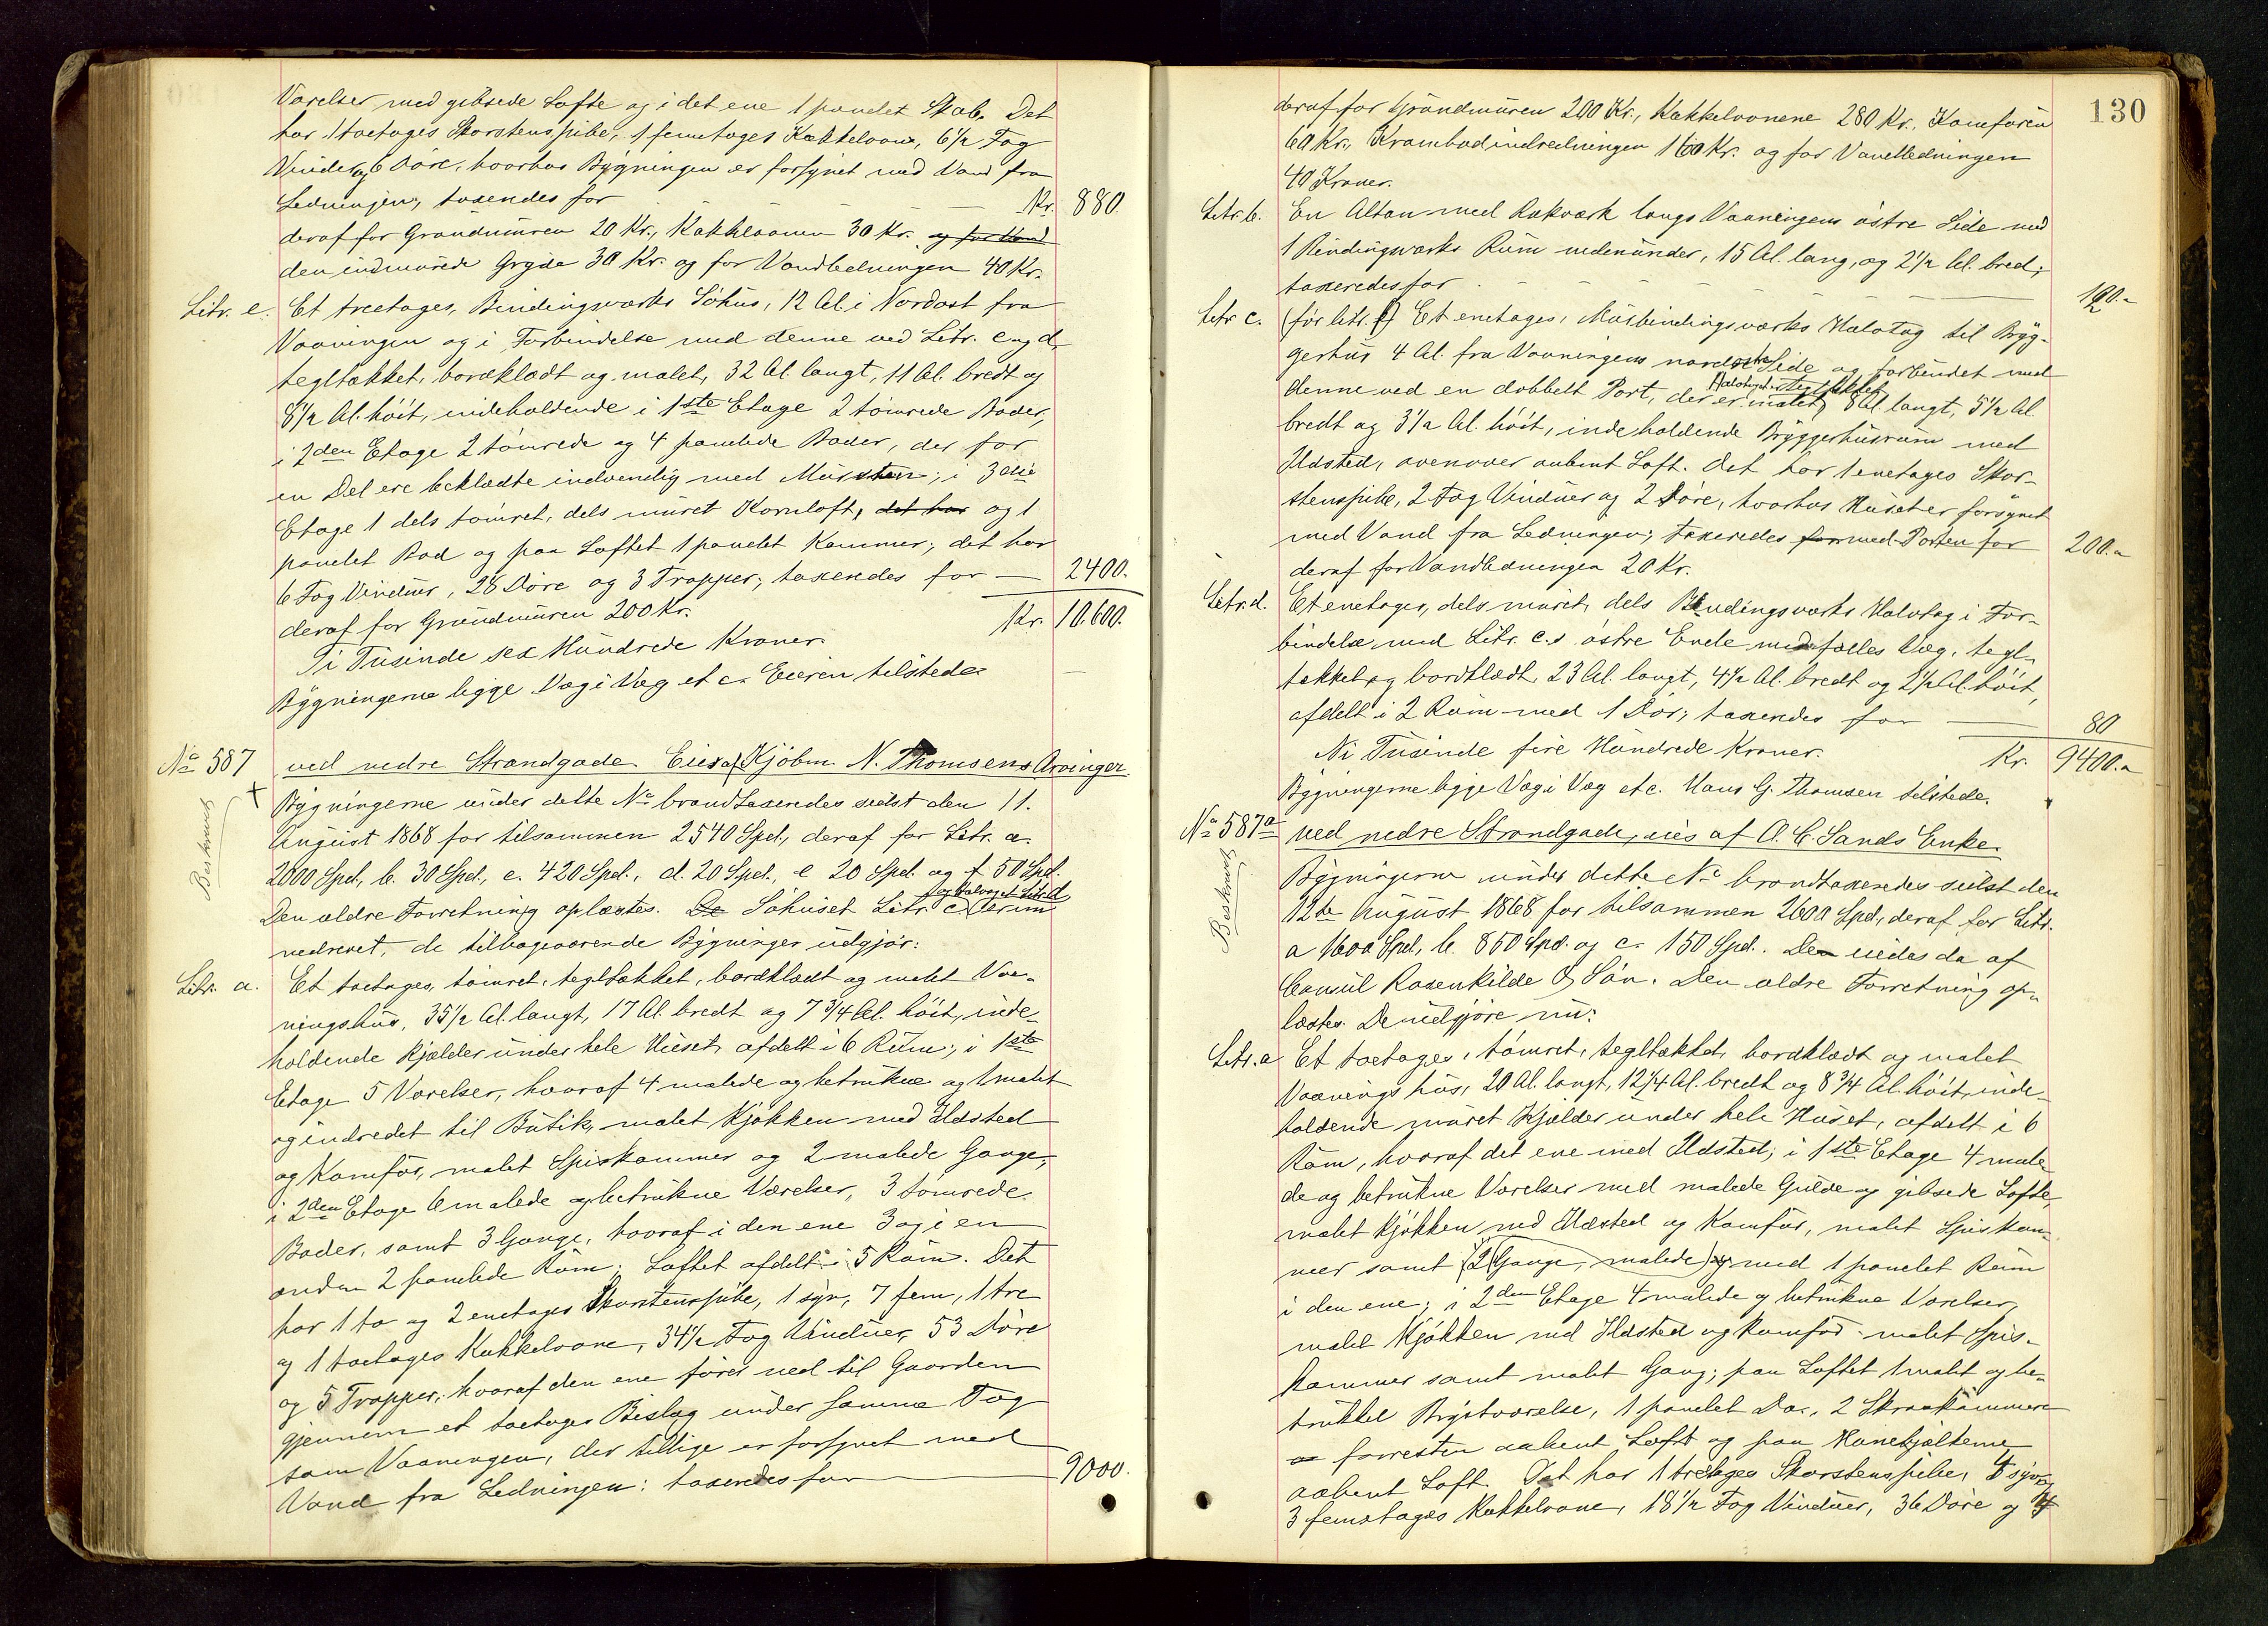 Værelser med gibsede Lofte og i det ene 1 panelet Skab. Det
har 1 toetages Skorstenspibe, 1 femetages Kakkelovn, 6 1/2 Fag
Vinduer og 6 Döre, hvorhos Bygningen er forsynet med Vand fra
Ledningen; taxeredes for — Kr. 880.
deraf for Grundmuren 20 Kr., Kakkelovnen 30 Kr. og for Vand
den indmurede Gryde 30 Kr. og for Vandledningen 40 Kr.
Litr. e. Et treetages, Bindingsværks Söhus, 12 Al. i Nordost fra
Vaaningen og i Forbindelse med denne ved Litr. c og d,
tegltækket, bordklædt og malet, 32 Al. langt, 11 Al. bredt og
8 1/2 Al. höit, indeholdende i 1ste Etage 2 tömrede Boder,
i 2den Etage 2 tömrede og 4 panelede Boder, der for
en Del ere beklædte indvendig med Mursten; i 3die
Etage 1 dels tömret, dels muret Kornloft, det har og 1
panelet Bod og paa Loftet 1 panelet Kammer; det har
6 Fag Vinduer, 28 Döre og 3 Trapper; taxeredes for — 2400.
deraf for Grundmuren 200 Kr.
Kr. 10.600.
Ti Tusinde sex Hundrede Kroner.
Bygningerne ligge Væg i Væg etc. Eieren tilstede.
No 587 ved nedre Strandgade Eies af Kjöbm. N. Thomsens Arvinger.
Beskrevet
Bygningerne under dette No brandtaxeredes sidst den 11.
August 1868 for tilsammen 2540 Spd., deraf for Litr. a.
2000 Spd., b. 30 Spd., c. 420 Spd., d. 20 Spd., e 20 Spd. og f 50 Spd.
Den ældre Forretning oplæstes. De Söhuset Litr. c og Halvtaget Litr. d er nu
nedrevet, de tilbageværende Bygninger udgjör:
Litr. a. Et toetages, tömret, tegltækket, bordklædt og malet Vaa-
ningshus, 35 1/2 Al. langt, 17 Al. bredt og 7 3/4 Al. höit, inde-
holdende Kjælder under hele Huset, afdelt i 6 Rum; i 1ste
Etage 5 Værelser, hvoraf 4 malede og betrukne og 1 malet
og indredet til Butik, malet Kjökken med Ildsted
og Komfur, malet Spiskammer og 2 malede Gange;
i 2den Etage 6 malede og betrukne Værelser, 3 tömrede
Boder, samt 3 Gange, hvoraf i den ene 3 og i en
anden 2 panelede Rum; Loftet afdelt i 5 Rum. Det
har 1 to og 2 enetages Skorstenspibe, 1 syv, 7 fem, 1 tre
og 1 toetages Kakkelovne, 34 1/2 Fag Vinduer, 53 Döre
og 5 Trapper, hvoraf den ene förer ned til Gaarden
gjennem et toetages Bislag under samme Tag
som Vaaningen, der tillige er forsynet med
Vand fra Ledningen; taxeredes for — 9000.
130
deraf for Grundmuren 200 Kr., Kakkelovnene 280 Kr., Komfuren
60 Kr., Krambodindredningen 160 Kr. og for Vandledningen
40 Kroner.
Litr. b. En Altan med Rækværk langs Vaaningens östre Side med
1 Bindingsværks Rum nedenunder, 15 Al. lang, og 2 1/2 Al. bred;
taxeredes for — 120.-
Litr c. (för litr. f) Et enetages, Murbindingsværks Halvtag til Bryg-
gerhus 4 Al. fra Vaaningens nordostre Side og forbundet med
denne ved en dobbelt Port, der er malet, Halvtaget er tegltækket 8 Al. langt, 5 1/2 Al.
bredt og 3 1/2 Al. höit, indeholdende Bryggerhusrum med
Ildsted, ovenover aabent Loft. Det har 1 enetages Skor-
stenspibe, 2 Fag Vinduer og 2 Döre, hvorhos Huset er forsynet
med Vand fra Ledningen; taxeredes for med Porten for 200.-
deraf for Vandledningen 20 Kr.
Litr. d. Et enetages, dels muret, dels Bindingsværks Halvtag i For-
bindelse med Litr. c.s östre Ende med fælles Væg, tegl-
tækket og bordklædt, 23 Al. langt, 4 1/2 Al. bredt og 2 1/2 Al. höit,
afdelt i 2 Rum med 1 Dör; taxeredes for — 80
Ni Tusinde fire Hundrede Kroner. Kr. 9400.-
Bygningerne ligge Væg i Væg etc. Hans G. Thomsen tilstede.
No 587a ved nedre Strandgade, eies af A. C. Sands Enke.
Beskrevet
Bygningerne under dette No brandtaxeredes sidst den
12te August 1868 for tilsammen 2600 Spd., deraf for Litr.
a 1600 Spd., b. 850 Spd. og c. 150 Spd. De eiedes da af
Consul Rosenkilde & Sön. Den ældre Forretning op-
læstes. De udgjöre nu:
Litr. a Et toetages, tömret, tegltækket, bordklædt og malet
Vaaningshus, 20 Al. langt, 12 1/4 Al. bredt og 8 3/4 Al. höit, inde-
holdende muret Kjælder under hele Huset, afdelt i 6
Rum, hvoraf det ene med Ildsted; i 1ste Etage 4 male-
de og betrukne Værelser med malede Gulve og gibsede Lofte,
malet Kjökken med Ildsted og Komfur, malet Spiskam-
mer samt (2 Gange, malede) med 1 panelet Rum
i den ene; i 2den Etage 4 malede og betrukne Værelser,
malet Kjökken med Ildsted og Komfur, malet Spis-
kammer samt malet Gang; paa Loftet 1 malet og be-
trukket Brystværelse, 1 panelet Do., 2 Skraakammere
forresten aabent Loft og paa Hanebjælkerne
aabent Loft. Det har 1 tretages Skorstenspibe, syv og
3 femetages Kakkelovne, 18 1/2 Fag Vinduer, 36 Döre og 4